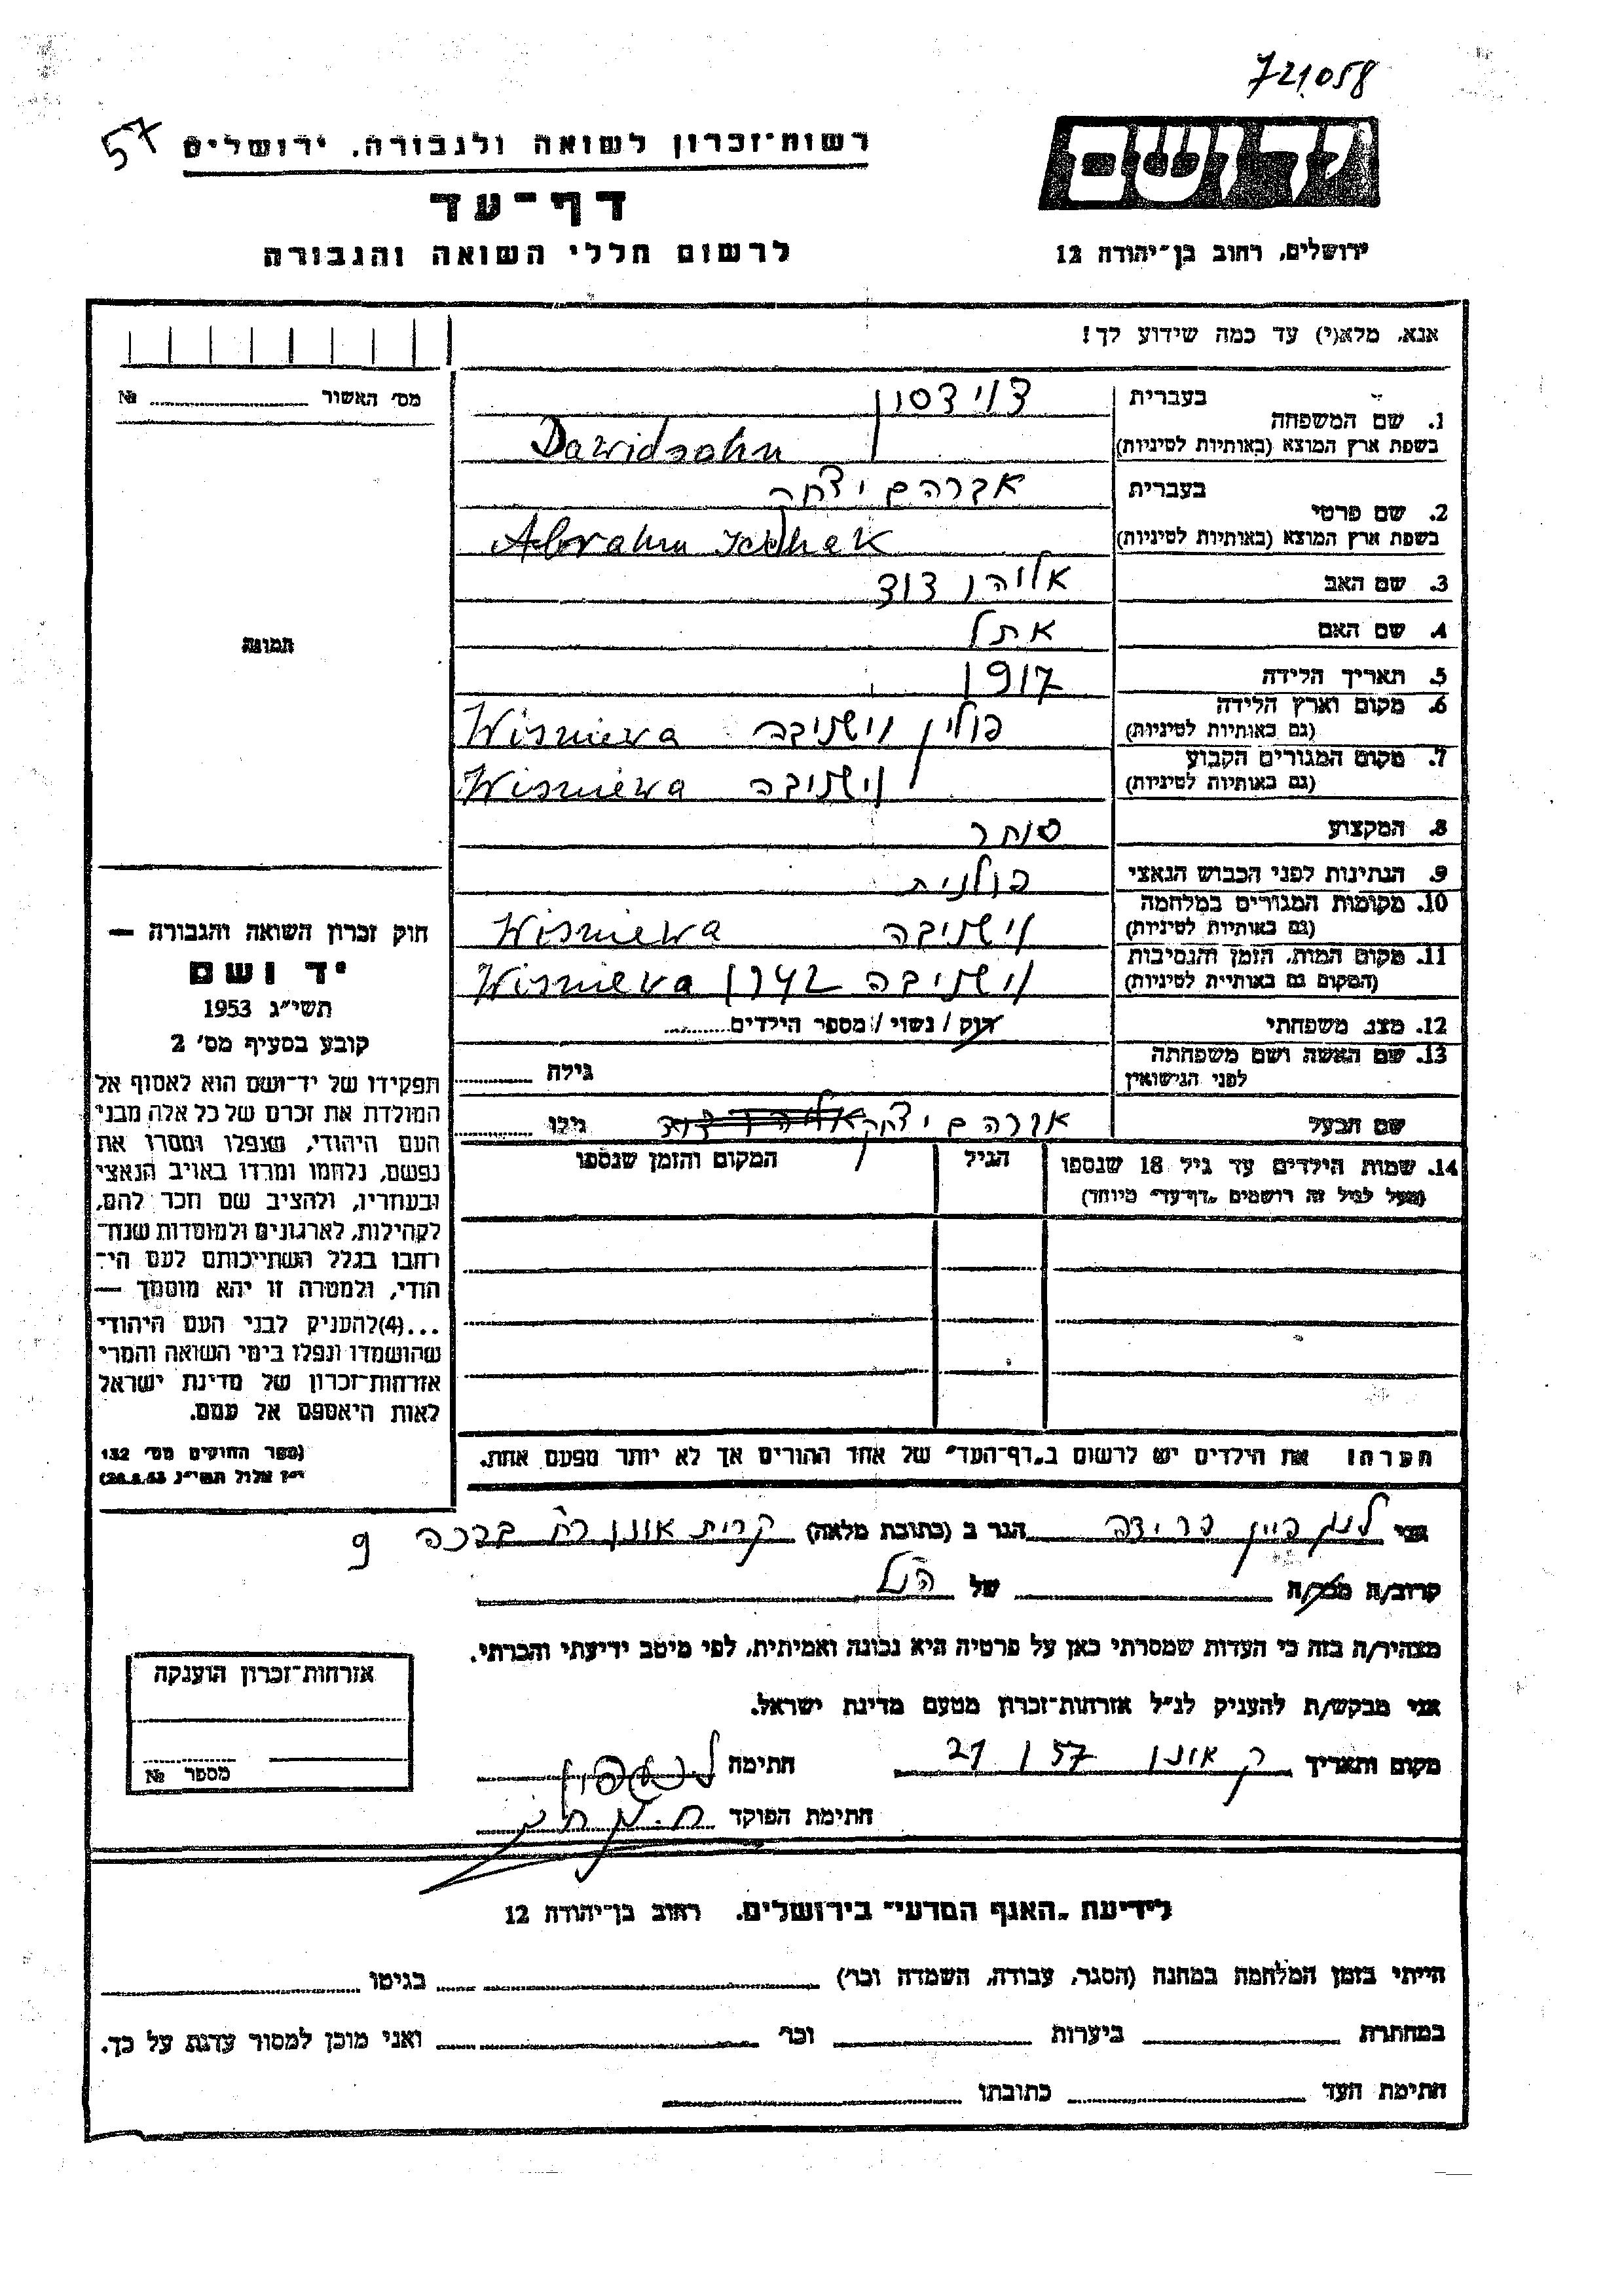 721058
57
רשות־זכרון לשואה ולגבורה, ירושלים
דף־עד
לרשום חללי השואה והגבורה
יד ושם
ירושלים, רחוב בן־יהודה 12
אנא, מלא(י) עד כמה שידוע לך!
מס׳ האשור № 
1. שם המשפחה בעברית דוידסון
בשפת ארץ המוצא (באותיות לטיניות) Dawidsohn
2. שם פרטי בעברית אברהם יצחק
בשפת ארץ המוצא (באותיות לטיניות) Abrahm Icchak
3. שם האב אליהו דוד
4. שם האם אתל
5. תאריך הלידה 1917
6. מקום וארץ הלידה (גם באותיות לטיניות) פולין וישניבה Wisniewa
7. מקום המגורים הקבוע (גם באותיות לטיניות) וישניבה Wisniewa
8. המקצוע סוחר
9. הנתינות לפני הכבוש הנאצי פולנית
10. מקומות המגורים במלחמה (גם באותיות לטיניות) וישניבה Wisniewa
11. מקום המות, הזמן והנסיבות (המקום גם באותיות לטיניות) וישניבה 1942 Wisniewa
12. מצב משפחתי רוק / נשוי / מספר הילדים
13. שם האשה ושם משפחתה לפני הנישואין גילה
שם הבעל אברהם יצחק גילו
14. שמות הילדים עד גיל 18 שנספו הגיל המקום והזמן שנספו
(מעל לגיל זה רושמים „דף־עד״ מיוחד)
הערה: את הילדים יש לרשום ב„דף־העד״ של אחד ההורים אך לא יותר מפעם אחת.
תמונה
חוק זכרון השואה והגבורה —
יד ושם
תשי״ג 1953
קובע בסעיף מס׳ 2
תפקידו של יד־ושם הוא לאסוף אל
המולדת את זכרם של כל אלה מבני
העם היהודי, שנפלו ומסרו את
נפשם, נלחמו ומרדו באויב הנאצי
ובעוזריו, ולהציב שם וזכר להם,
לקהילות, לארגונים ולמוסדות שנח־
רבו בגלל השתייכותם לעם הי־
הודי, ולמטרה זו יהא מוסמך —
...(4)להעניק לבני העם היהודי
שהושמדו ונפלו בימי השואה והמרי
אזרחות־זכרון של מדינת ישראל
לאות היאספם אל עמם.
(ספר החוקים מס׳ 132
י״ז אלול תשי״ג 28.8.53)
אני הגר ב (כתובת מלאה) קרית אונו רח ברכה 9
קרוב/ה מכר/ה של הנ״ל
מצהיר/ה בזה כי העדות שמסרתי כאן על פרטיה היא נכונה ואמיתית, לפי מיטב ידיעתי והכרתי.
אני מבקש/ת להעניק לנ״ל אזרחות־זכרון מטעם מדינת ישראל.
מקום ותאריך ק אונו 57 חתימה
חתימת הפוקד
אזרחות־זכרון הוענקה
מספר №
לידיעת „האגף המדעי״ בירושלים, רחוב בן־יהודה 12
הייתי בזמן המלחמה במחנה (הסגר, עבודה, השמדה וכו׳) בגיטו
במחתרת ביערות וכו׳ ואני מוכן למסור עדות על כך.
חתימת העד כתובתו